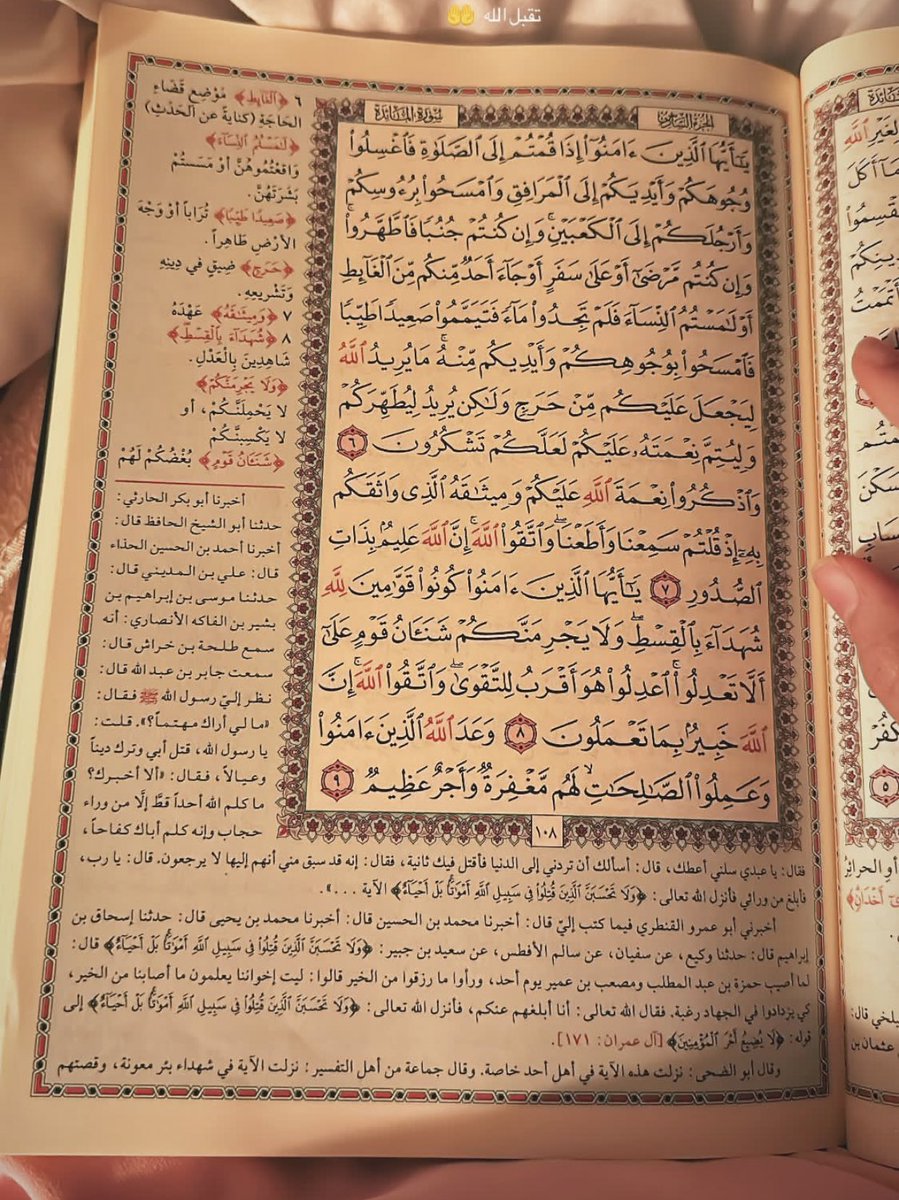 تقبل الله 🤲
الجزء السادس
سورة المائدة
يَٰٓأَيُّهَا ٱلَّذِينَ ءَامَنُوٓا۟ إِذَا قُمْتُمْ إِلَى ٱلصَّلَوٰةِ فَٱغْسِلُوا۟
وُجُوهَكُمْ وَأَيْدِيَكُمْ إِلَى ٱلْمَرَافِقِ وَٱمْسَحُوا۟ بِرُءُوسِكُمْ
وَأَرْجُلَكُمْ إِلَى ٱلْكَعْبَيْنِ ۚ وَإِن كُنتُمْ جُنُبًا فَٱطَّهَّرُوا۟ ۚ
وَإِن كُنتُم مَّرْضَىٰٓ أَوْ عَلَىٰ سَفَرٍ أَوْ جَآءَ أَحَدٌ مِّنكُم مِّنَ ٱلْغَآئِطِ
أَوْ لَٰمَسْتُمُ ٱلنِّسَآءَ فَلَمْ تَجِدُوا۟ مَآءً فَتَيَمَّمُوا۟ صَعِيدًا طَيِّبًا
فَٱمْسَحُوا۟ بِوُجُوهِكُمْ وَأَيْدِيكُم مِّنْهُ ۚ مَا يُرِيدُ ٱللَّهُ
لِيَجْعَلَ عَلَيْكُم مِّنْ حَرَجٍ وَلَٰكِن يُرِيدُ لِيُطَهِّرَكُمْ
وَلِيُتِمَّ نِعْمَتَهُۥ عَلَيْكُمْ لَعَلَّكُمْ تَشْكُرُونَ ٦
وَٱذْكُرُوا۟ نِعْمَةَ ٱللَّهِ عَلَيْكُمْ وَمِيثَٰقَهُ ٱلَّذِى وَاثَقَكُم
بِهِۦٓ إِذْ قُلْتُمْ سَمِعْنَا وَأَطَعْنَا ۖ وَٱتَّقُوا۟ ٱللَّهَ ۚ إِنَّ ٱللَّهَ عَلِيمٌۢ بِذَاتِ
ٱلصُّدُورِ ٧ يَٰٓأَيُّهَا ٱلَّذِينَ ءَامَنُوا۟ كُونُوا۟ قَوَّٰمِينَ لِلَّهِ
شُهَدَآءَ بِٱلْقِسْطِ ۖ وَلَا يَجْرِمَنَّكُمْ شَنَـَٔانُ قَوْمٍ عَلَىٰٓ
أَلَّا تَعْدِلُوا۟ ۚ ٱعْدِلُوا۟ هُوَ أَقْرَبُ لِلتَّقْوَىٰ ۖ وَٱتَّقُوا۟ ٱللَّهَ ۚ إِنَّ
ٱللَّهَ خَبِيرٌۢ بِمَا تَعْمَلُونَ ٨ وَعَدَ ٱللَّهُ ٱلَّذِينَ ءَامَنُوا۟
وَعَمِلُوا۟ ٱلصَّٰلِحَٰتِ ۙ لَهُم مَّغْفِرَةٌ وَأَجْرٌ عَظِيمٌ ٩
١٠٨
٦ ﴿الغَائِطِ﴾ مَوْضِعِ قَضَاءِ
الحَاجَةِ (كنايةً عن الحَدَثِ)
﴿لَامَسْتُمُ النِّسَاءَ﴾
وَاقَعْتُمُوهُنَّ أَوْ مَسَسْتُمْ
بَشَرَتَهُنَّ.
﴿صَعِيدًا طَيِّبًا﴾ تُرَاباً أَوْ وَجْهَ
الأَرْضِ طَاهِراً.
﴿حَرَجٍ﴾ ضِيقٍ في دِينِهِ
وَتَشْرِيعِهِ.
٧ ﴿وَمِيثَاقَهُ﴾ عَهْدَهُ
٨ ﴿شُهَدَاءَ بِالْقِسْطِ﴾
شَاهِدِينَ بِالْعَدْلِ.
﴿وَلَا يَجْرِمَنَّكُمْ﴾
لَا يَحْمِلَنَّكُمْ، أو
لا يَكْسِبَنَّكُمْ
﴿شَنَآنُ قَوْمٍ﴾ بُغْضُكُمْ لَهُمْ
أخبرنا أبو بكر الحارثي:
حدثنا أبو الشيخ الحافظ قال:
أخبرنا أحمد بن الحسين الحذاء
قال: علي بن المديني قال:
حدثنا موسى بن إبراهيم بن
بشير بن الفاكه الأنصاري: أنه
سمع طلحة بن خراش قال:
سمعت جابر بن عبد الله قال:
نظر إليّ رسول الله ﷺ فقال:
«ما لي أراك مهتماً؟». قلت:
يا رسول الله، قتل أبي وترك ديناً
وعيالاً، فقال: «ألا أخبرك؟
ما كلم الله أحداً قطّ إلَّا من وراء
حجاب وإنه كلم أباك كفاحاً،
فقال: يا عبدي سلني أعطك، قال: أسألك أن تردني إلى الدنيا فأقتل فيك ثانية، فقال: إنه قد سبق مني أنهم إليها لا يرجعون. قال: يا رب،
فأبلغ من ورائي فأنزل الله تعالى: ﴿وَلَا تَحْسَبَنَّ الَّذِينَ قُتِلُوا فِي سَبِيلِ اللَّهِ أَمْوَاتًا بَلْ أَحْيَاءٌ﴾ الآية ...».
أخبرني أبو عمرو القنطري فيما كتب إليّ قال: أخبرنا محمد بن الحسين قال: أخبرنا محمد بن يحيى قال: حدثنا إسحاق بن
إبراهيم قال: حدثنا وكيع، عن سفيان، عن سالم الأفطس، عن سعيد بن جبير: ﴿وَلَا تَحْسَبَنَّ الَّذِينَ قُتِلُوا فِي سَبِيلِ اللَّهِ أَمْوَاتًا بَلْ أَحْيَاءٌ﴾ قال:
لما أصيب حمزة بن عبد المطلب ومصعب بن عمير يوم أحد، ورأوا ما رزقوا من الخير قالوا: ليت إخواننا يعلمون ما أصابنا من الخير،
كي يزدادوا في الجهاد رغبة. فقال الله تعالى: أنا أبلغهم عنكم، فأنزل الله تعالى: ﴿وَلَا تَحْسَبَنَّ الَّذِينَ قُتِلُوا فِي سَبِيلِ اللَّهِ أَمْوَاتًا بَلْ أَحْيَاءٌ﴾ إلى
قوله: ﴿لَا يُضِيعُ أَجْرَ الْمُؤْمِنِينَ﴾ [آل عمران: ١٧١].
وقال أبو الضحى: نزلت هذه الآية في أهل أحد خاصة. وقال جماعة من أهل التفسير: نزلت الآية في شهداء بئر معونة، وقصتهم